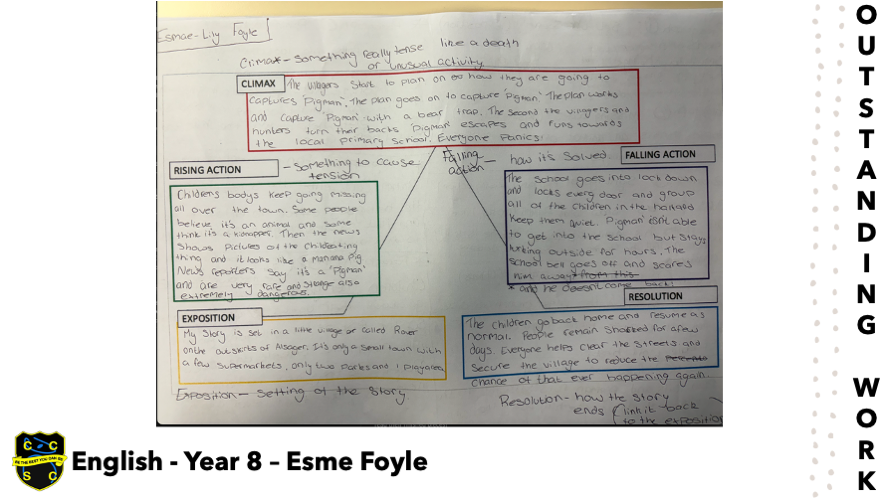 Esmae-Lily Foyle
Climax - something really tense like a death
or unusual activity
CLIMAX
The villagers start to plan on how they are going to
captures 'Pigman'. The plan goes on to capture 'Pigman'. The plan works
and capture 'Pigman' with a bear trap. The second the villagers and
hunters turn their backs 'Pigman' escapes and runs towards
the local primary school. Everyone panics.
RISING ACTION
- something to cause
tension
Falling
action
- how it's solved.
FALLING ACTION
Childrens bodys keep going missing
all over the town. Some people
believe it's an animal and some
think it's a kidnapper. Then the news
shows pictures of the child eating
thing and it looks like a man and pig
News reporters say it's a 'Pigman'
and are very rare and strange also
extremely dangerous.
The school goes into lock down
and locks every door and group
all of the children in the hall and
keep them quiet. Pigman isn't able
to get into the school but stays
lurking outside for hours. The
school bell goes off and scares
him away from this
* and he doesn't come back!
EXPOSITION
My story is set in a little village called
on the outskirts of Alsager. It's only a small town with
a few supermarkets, only two parks and 1 playarea
Exposition - Setting of the story
RESOLUTION
The children go back home and resume as
normal. People remain shocked for a few
days. Everyone helps clear the streets and
secure the village to reduce the
chance of that ever happening again
Resolution - how the story
ends (link it back
to the exposition
C C
BE THE BEST YOU CAN BE
S C
English - Year 8 – Esme Foyle
OUTSTANDING WORK